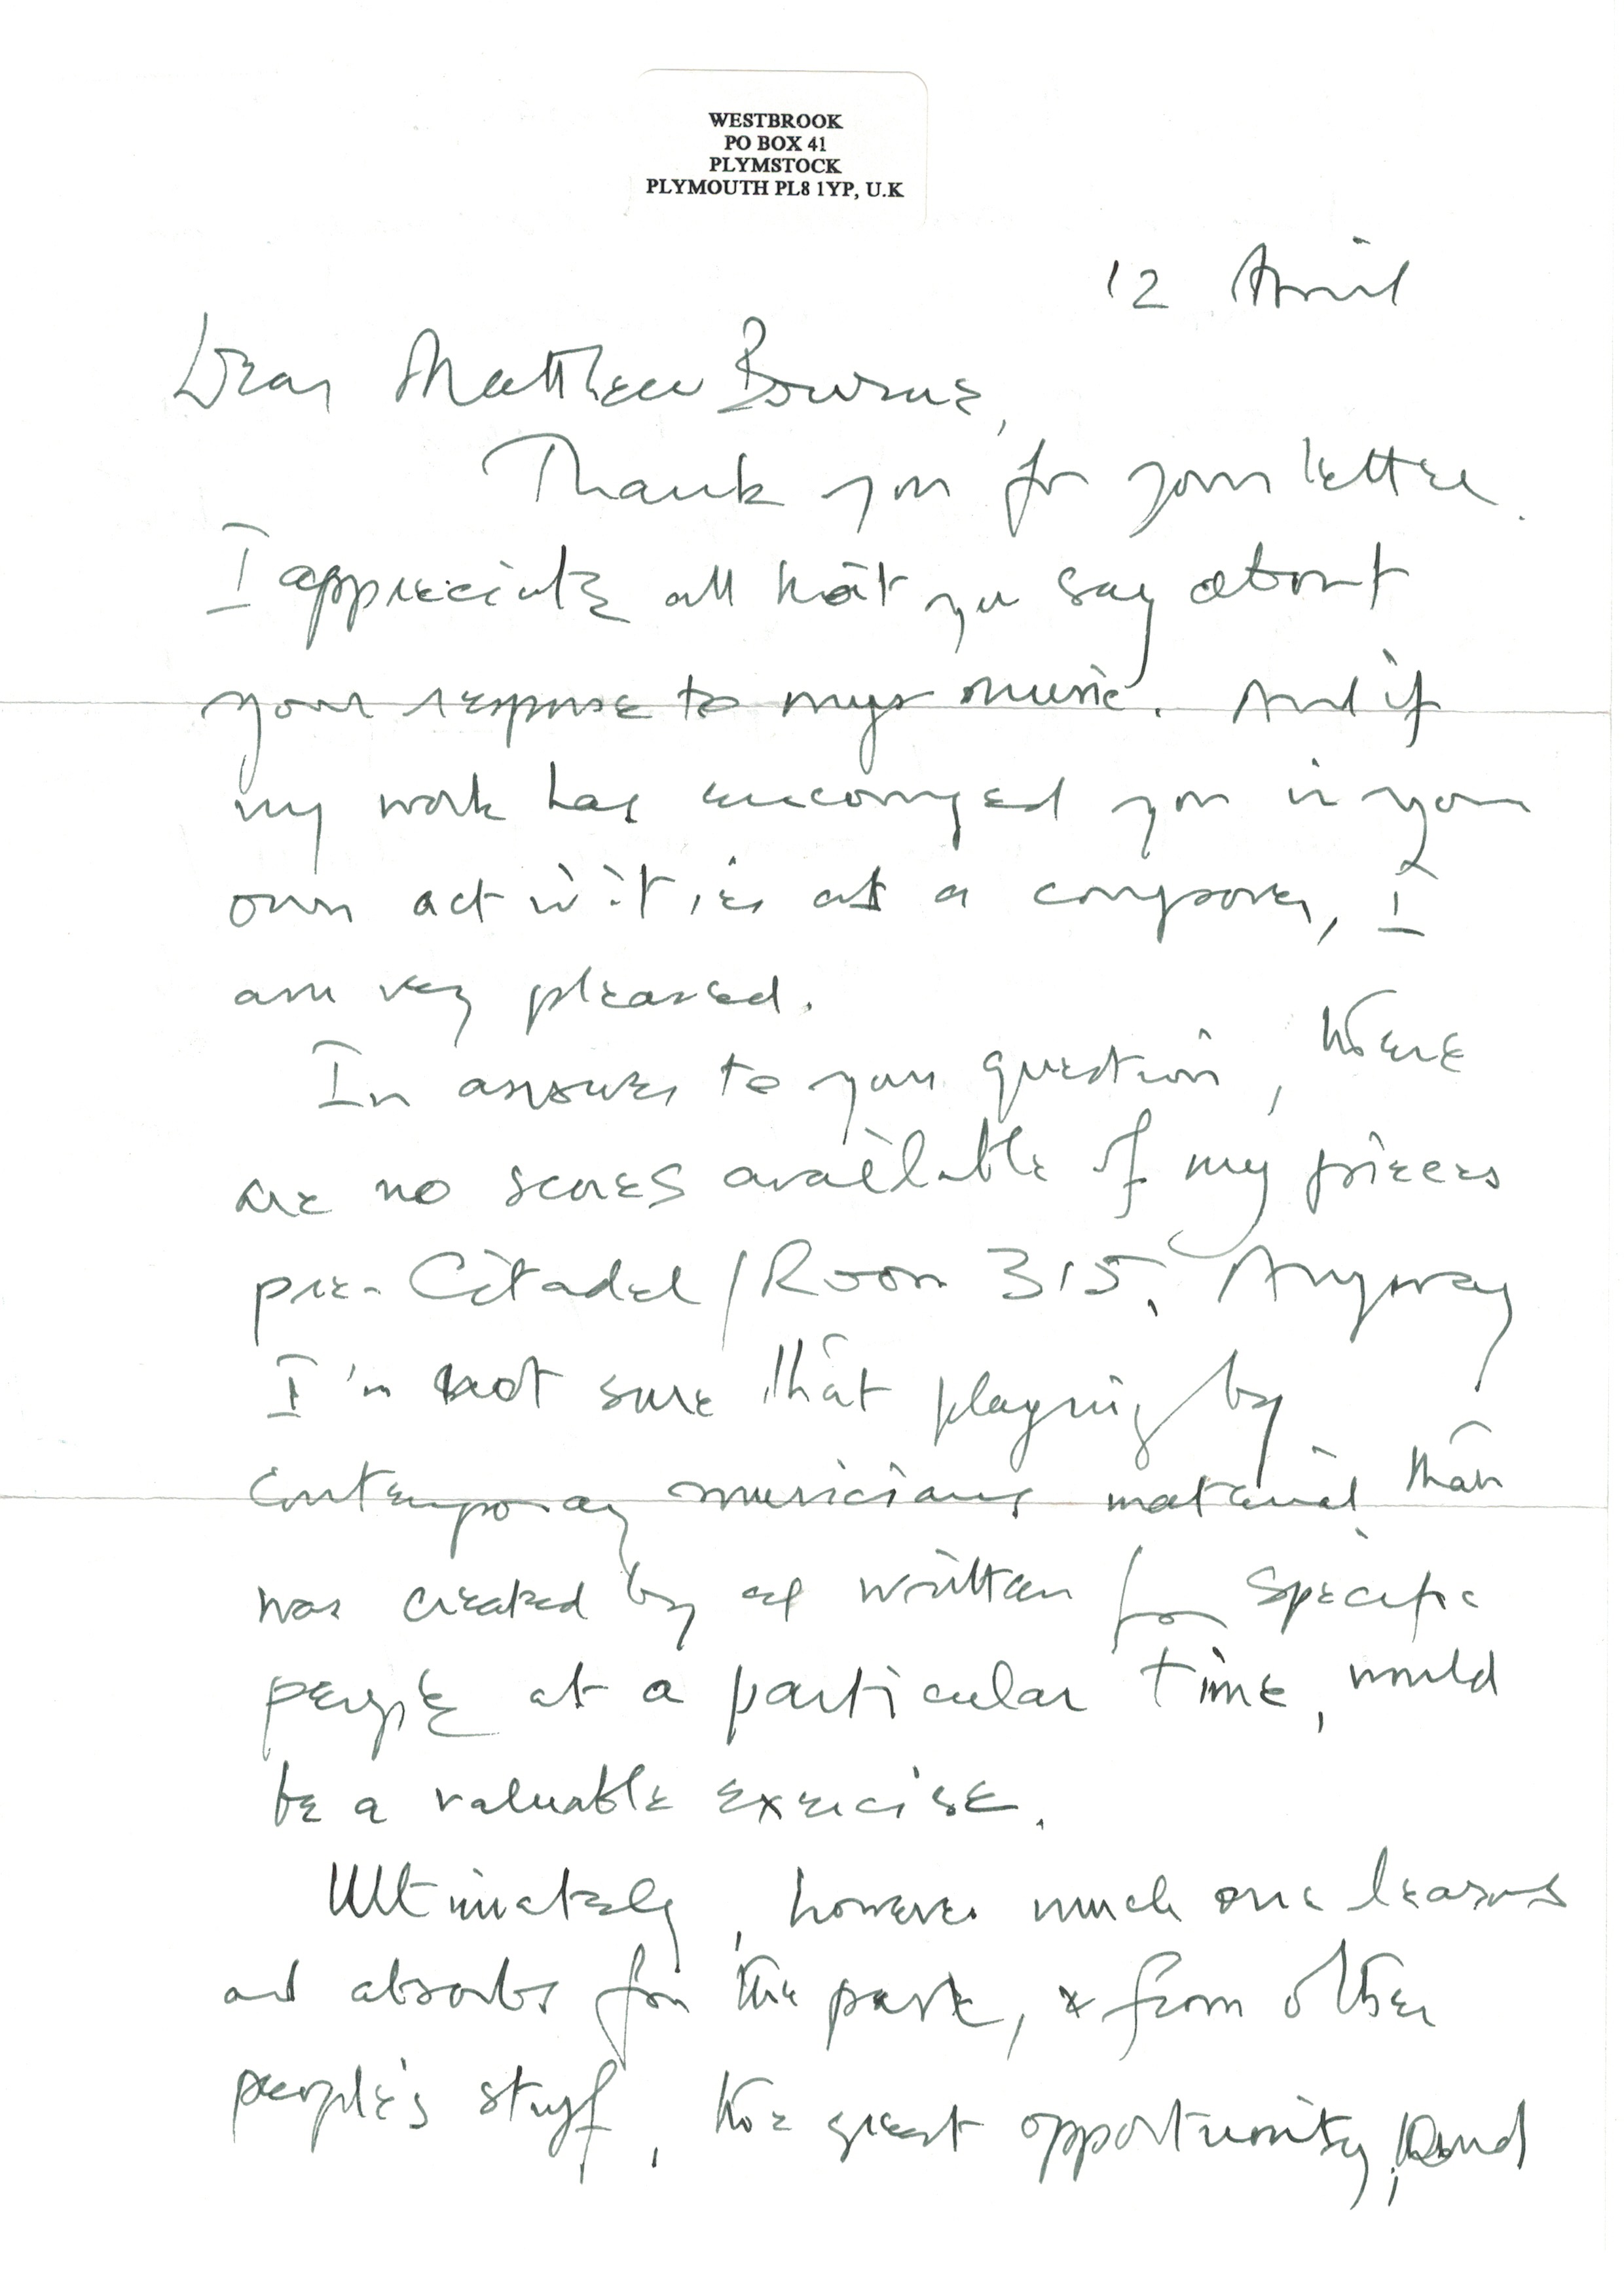 WESTBROOK
PO BOX 41
PLYMSTOCK
PLYMOUTH PL8 1YP, U.K
12 April
Dear Matthew Bourne,
Thank you for your letter.
I appreciate all that you say about
your response to my music. And if
my work has encouraged you in your
own activities as a composer, I
am very pleased.
In answer to your question, there
are no scores available of my pieces
pre-Citadel/Room 315. Anyway
I'm not sure that playing by
contemporary musicians material that
was created by and written for specific
people at a particular time, would
be a valuable exercise.
Ultimately, however much one learns
and absorbs from the past, & from other
people's stuff, the great opportunity, and